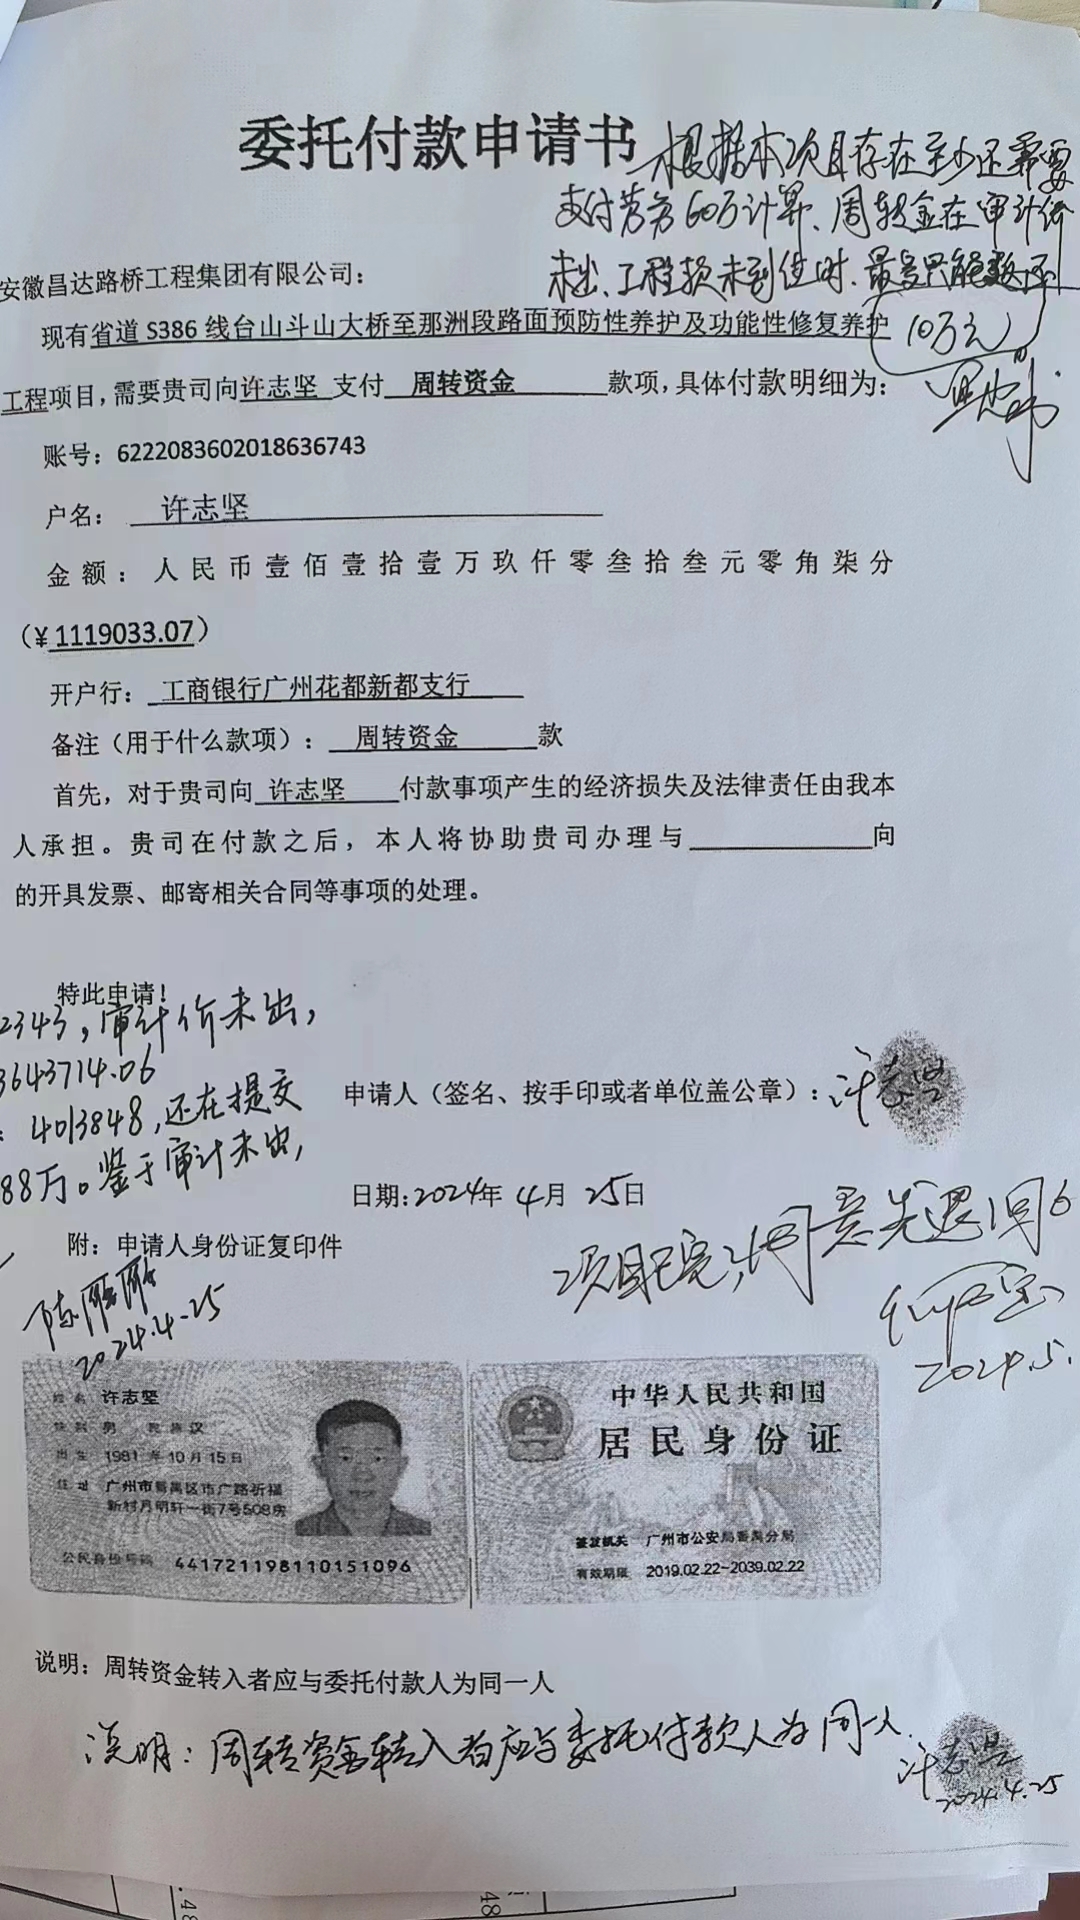 委托付款申请书
根据本项目存在至少还需要
支付劳务60万计算、周转金在审计价
未出、工程款未到位时、最多只能退还
10万元
安徽昌达路桥工程集团有限公司：
现有省道 S386 线台山斗山大桥至那洲段路面预防性养护及功能性修复养护
工程项目，需要贵司向许志坚支付 周转资金 款项，具体付款明细为：
账号：6222083602018636743
户名： 许志坚
金额：人民币壹佰壹拾壹万玖仟零叁拾叁元零角柒分
（¥1119033.07）
开户行： 工商银行广州花都新都支行
备注（用于什么款项）： 周转资金 款
首先，对于贵司向 许志坚 付款事项产生的经济损失及法律责任由我本
人承担。贵司在付款之后，本人将协助贵司办理与 向
的开具发票、邮寄相关合同等事项的处理。
特此申请！
2343，审计价未出，
3643714.06
：4013848，还在提交
88万。鉴于审计未出，
申请人（签名、按手印或者单位盖公章）：许志坚
日期：2024年 4月 25日
附：申请人身份证复印件
2024.4.25
项目已完，同意先退1间6
2024.5.
姓名 许志坚
性别 男 民族 汉
出生 1981 年 10 月 15 日
住址 广州市番禺区市广路祈福
新村月明轩一街7号508房
公民身份号码 441721198110151096
中华人民共和国
居民身份证
签发机关 广州市公安局番禺分局
有效期限 2019.02.22-2039.02.22
说明：周转资金转入者应与委托付款人为同一人
说明：周转资金转入者应与委托付款人为同一人.
许志坚
2024.4.25
48
48